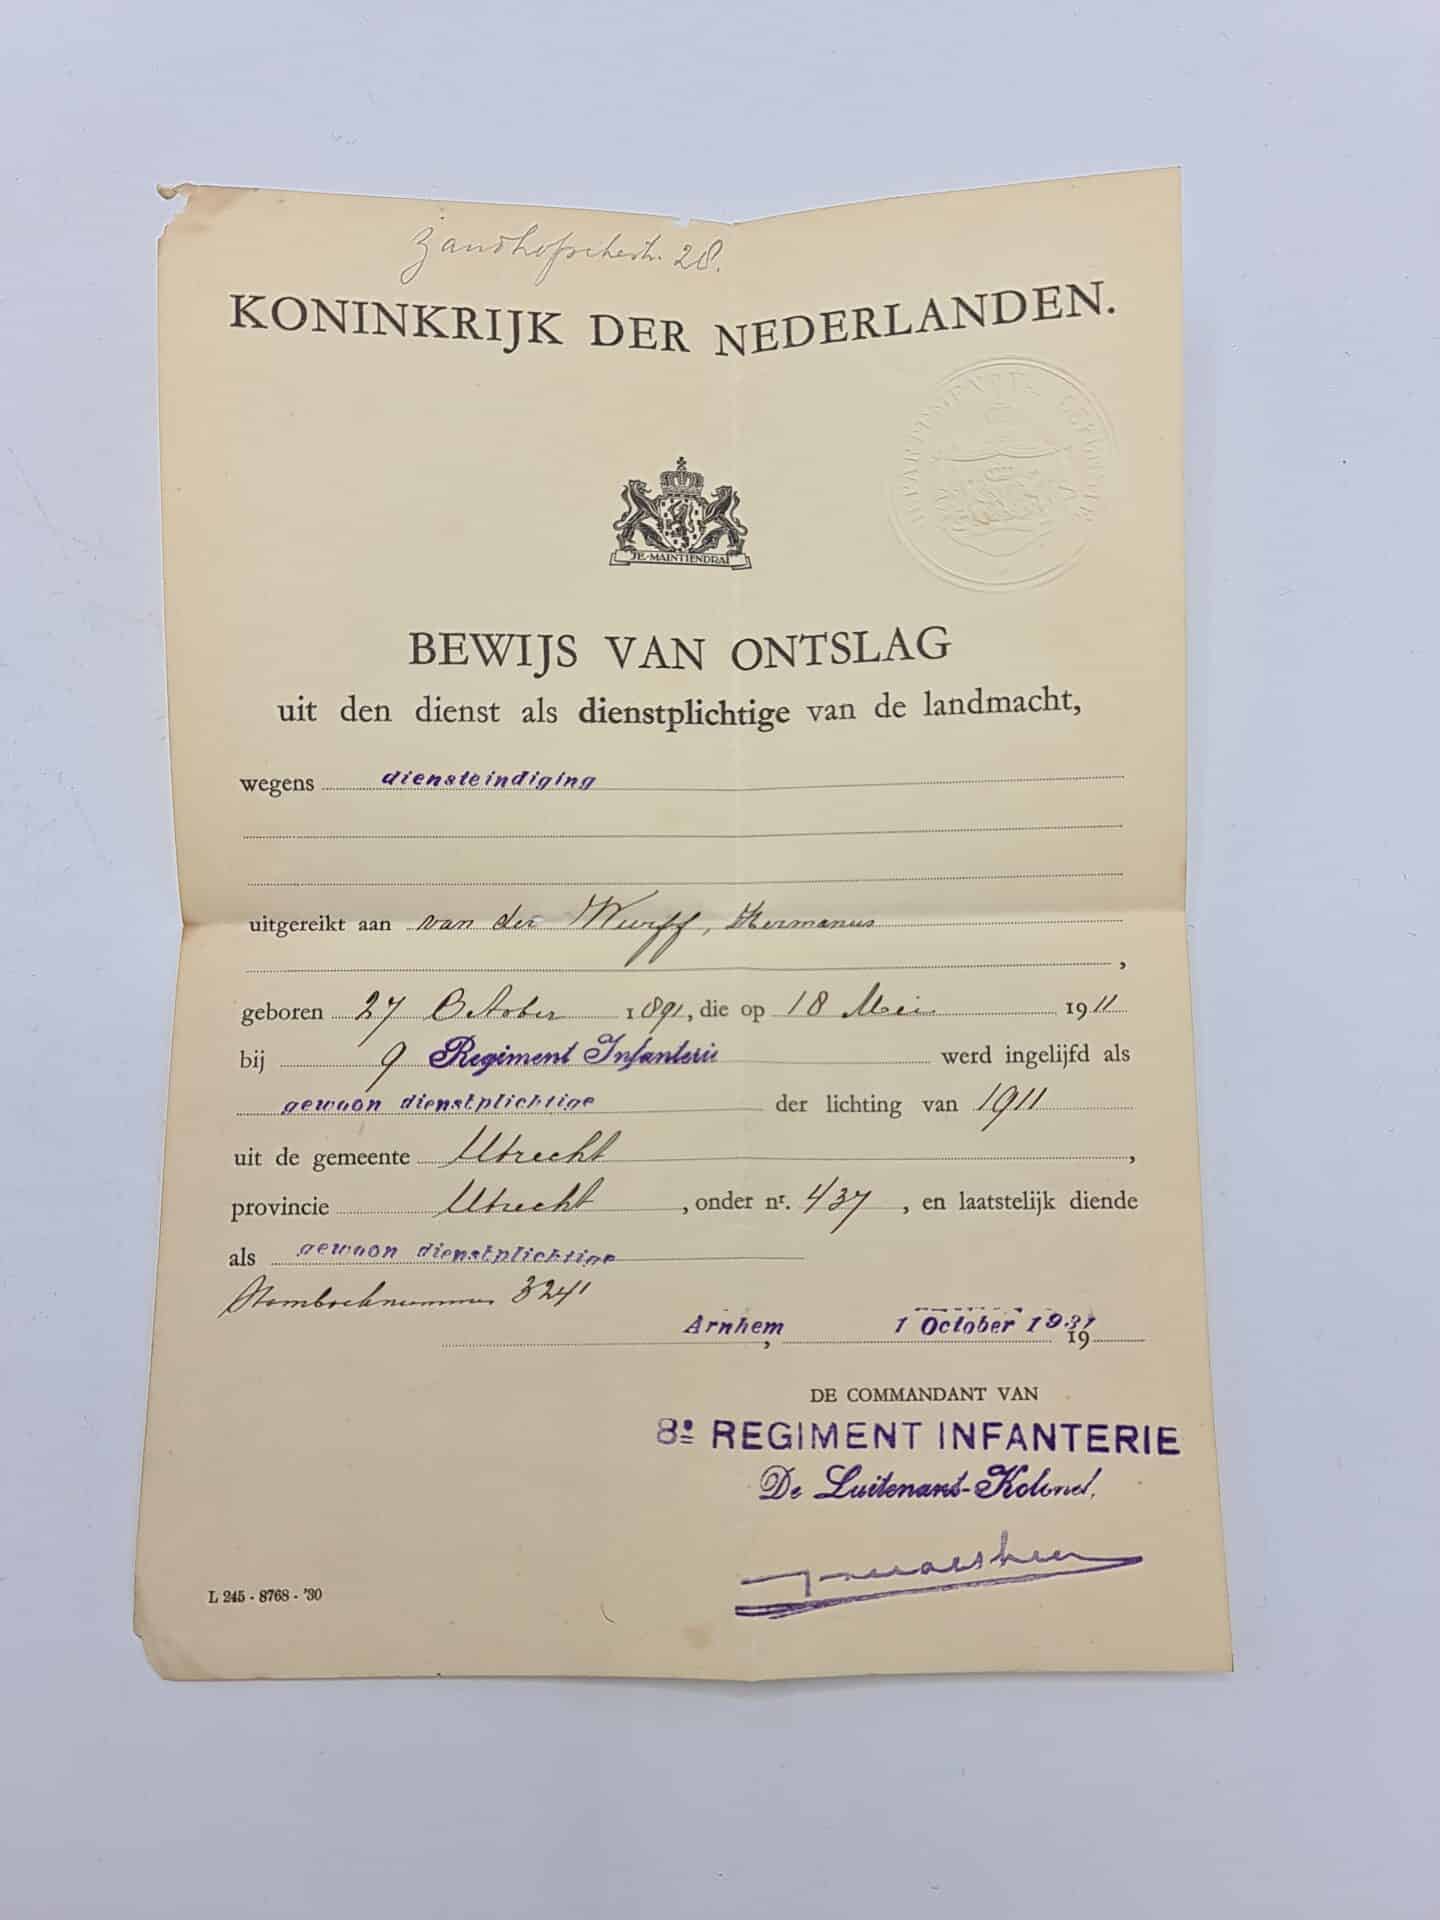 Zandhofschestr. 28.
KONINKRIJK DER NEDERLANDEN.
DEPARTEMENT V. DEFENSIE
JE·MAINTIENDRAI
BEWIJS VAN ONTSLAG
uit den dienst als dienstplichtige van de landmacht,
wegens diensteindiging
uitgereikt aan van der Wurff, Hermanus
,
geboren 27 October 1891, die op 18 Mei 1911
bij 9 Regiment Infanterie werd ingelijfd als
gewoon dienstplichtige der lichting van 1911
uit de gemeente Utrecht,
provincie Utrecht, onder nr. 437, en laatstelijk diende
als gewoon dienstplichtige
Stamboeknummer 3241
Arnhem, 1 October 1931 19
DE COMMANDANT VAN
8e REGIMENT INFANTERIE
De Luitenant-Kolonel,
L 245 - 8768 - '30